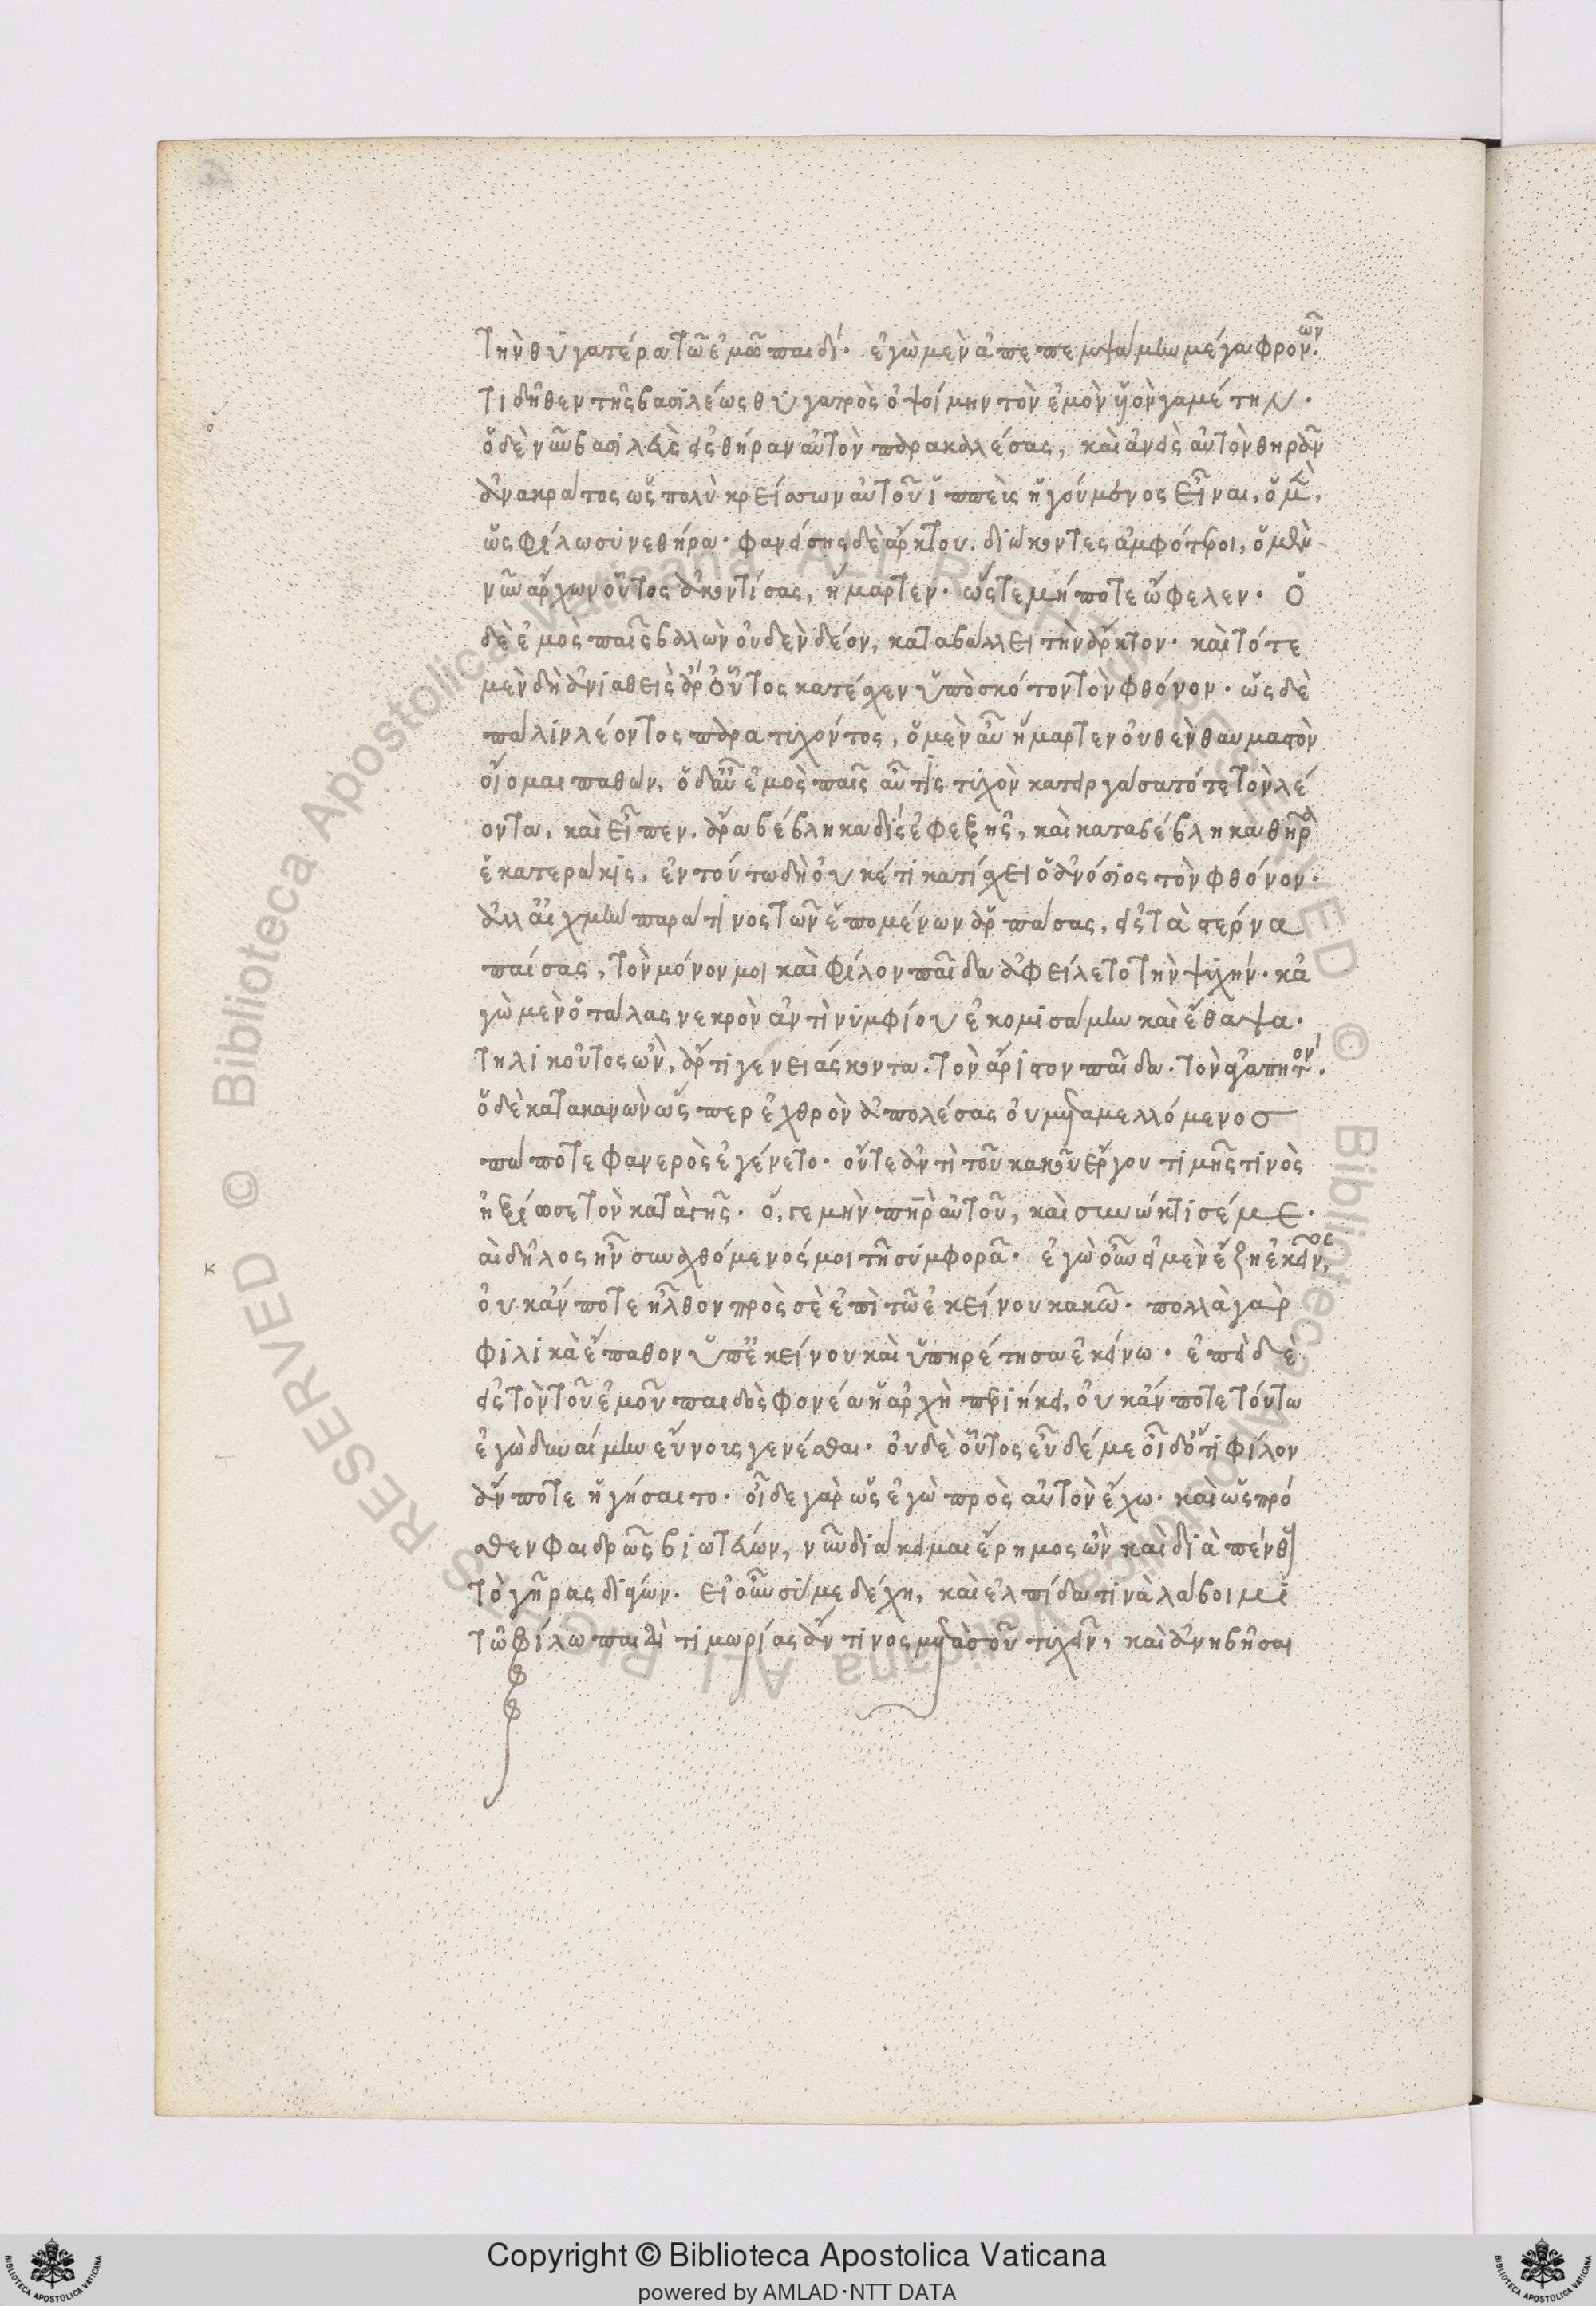 τὴν θυγατέρα τῶ ἐμῶ παιδί· ἐγὼ μὲν ἀπεπεμψάμην μέγα φρονῶν·
τι δῆθεν τῆς βασιλέως θυγατρὸς ὀψοίμην τὸν ἐμὸν υἱὸν γαμέτην·
ὁ δὲ νῦν βασιλεὺς εἰς θήραν αὐτὸν παρακαλέσας, καὶ ἀνεὶς αὐτὸν θηρᾶν
ἀνακράτος ὡς πολὺ κρείσσων αὐτοῦ ἱππεὺς ἡγούμενος εἶναι, ὁ μὲν,
ὡς φίλω συνεθήρα· φανείσης δὲ ἄρκτου. διώκοντες ἀμφότεροι, ὁ μὲν
νῦν ἄρχων οὗτος ἀκοντίσας, ἥμαρτεν· ὥστε μήποτε ὤφελεν· ὁ
δὲ ἐμὸς παῖς βαλὼν οὐδὲν δέον, καταβάλλει τὴν ἄρκτον· καὶ τότε
μὲν δὴ ἀνιαθεὶς ἄρ' οὗτος κατέσχεν ὑπὸ σκότον τὸν φθόνον· ὡς δὲ
πάλιν λέοντος παρατυχόντος, ὁ μὲν αὖ ἥμαρτεν οὐθὲν θαυμαστὸν
οἴομαι παθών, ὁ δ' αὖ ἐμὸς παῖς αὖτις τυχὸν κατειργάσατό τε τὸν λέ
οντα, καὶ εἶπεν. ἄρα βέβληκα δὶς ἐφεξῆς, καὶ καταβέβληκα θῆρα
ἑκατεράκις, ἐν τούτω δὴ οὐκέτι κατίσχει ὁ ἀνόσιος τὸν φθόνον·
ἀλλ' αἰχμὴν παρά τινος τῶν ἑπομένων ἁρπάσας, εἰς τὰ στέρνα
παίσας, τὸν μόνον μοι καὶ φίλον παῖδα ἀφείλετο τὴν ψυχήν· κἀ
γὼ μὲν ὁ τάλας νεκρὸν ἀντὶ νυμφίου ἐκομισάμην καὶ ἔθαψα·
τηλικοῦτος ὢν, ἄρτι γενειάσκοντα. τὸν ἄριστον παῖδα. τὸν ἀγαπητόν.
ὁ δὲ κατακανὼν ὥσπερ ἐχθρὸν ἀπολέσας οὐ μεταμελλόμενος
πώποτε φανερὸς ἐγένετο· οὔτε ἀντὶ τοῦ κακοῦ ἔργου τιμῆς τινὸς
ἠξίωσε τὸν κατὰ γῆς· ὅ, γε μὴν πατὴρ αὐτοῦ, καὶ συνώκτισέ με·
αὶ δῆλος ἦν συναχθόμενός μοι τῆ συμφορᾶ· ἐγὼ οὖν εἰ μὲν ἔζη ἐκεῖνος,
οὐκ ἄν ποτε ἦλθον πρὸς σὲ ἐπὶ τῶ ἐκείνου κακῶ· πολλὰ γὰρ
φιλικὰ ἔπαθον ὑπ' ἐκείνου καὶ ὑπηρέτησα ἐκείνω· ἐπεὶ δὲ
εἰς τὸν τοῦ ἐμοῦ παιδὸς φονέα ἡ ἀρχὴ περιήκει, οὐκ ἄν ποτε τούτω
ἐγὼ δυναίμην εὔνους γενέσθαι· οὐδὲ οὗτος εὖ δέ με οἶδ' ὅτι φίλον
ἄν ποτε ἡγήσαιτο· οἶδε γὰρ ὡς ἐγὼ πρὸς αὐτὸν ἔχω· καὶ ὡς πρό
σθεν φαιδρῶς βιωτεύων, νῦν διάκειμαι ἔρημος ὢν καὶ διὰ πένθους
τὸ γῆρας διάγων. εἰ οὖν σύ με δέχη, καὶ ἐλπίδα τινὰ λάβοιμι
τῶ φίλω παιδὶ τιμωρίας ἄν τινος μετὰ σοῦ τυχεῖν, καὶ ἀνηβῆσαι
κ
Copyright © Biblioteca Apostolica Vaticana
powered by AMLAD·NTT DATA